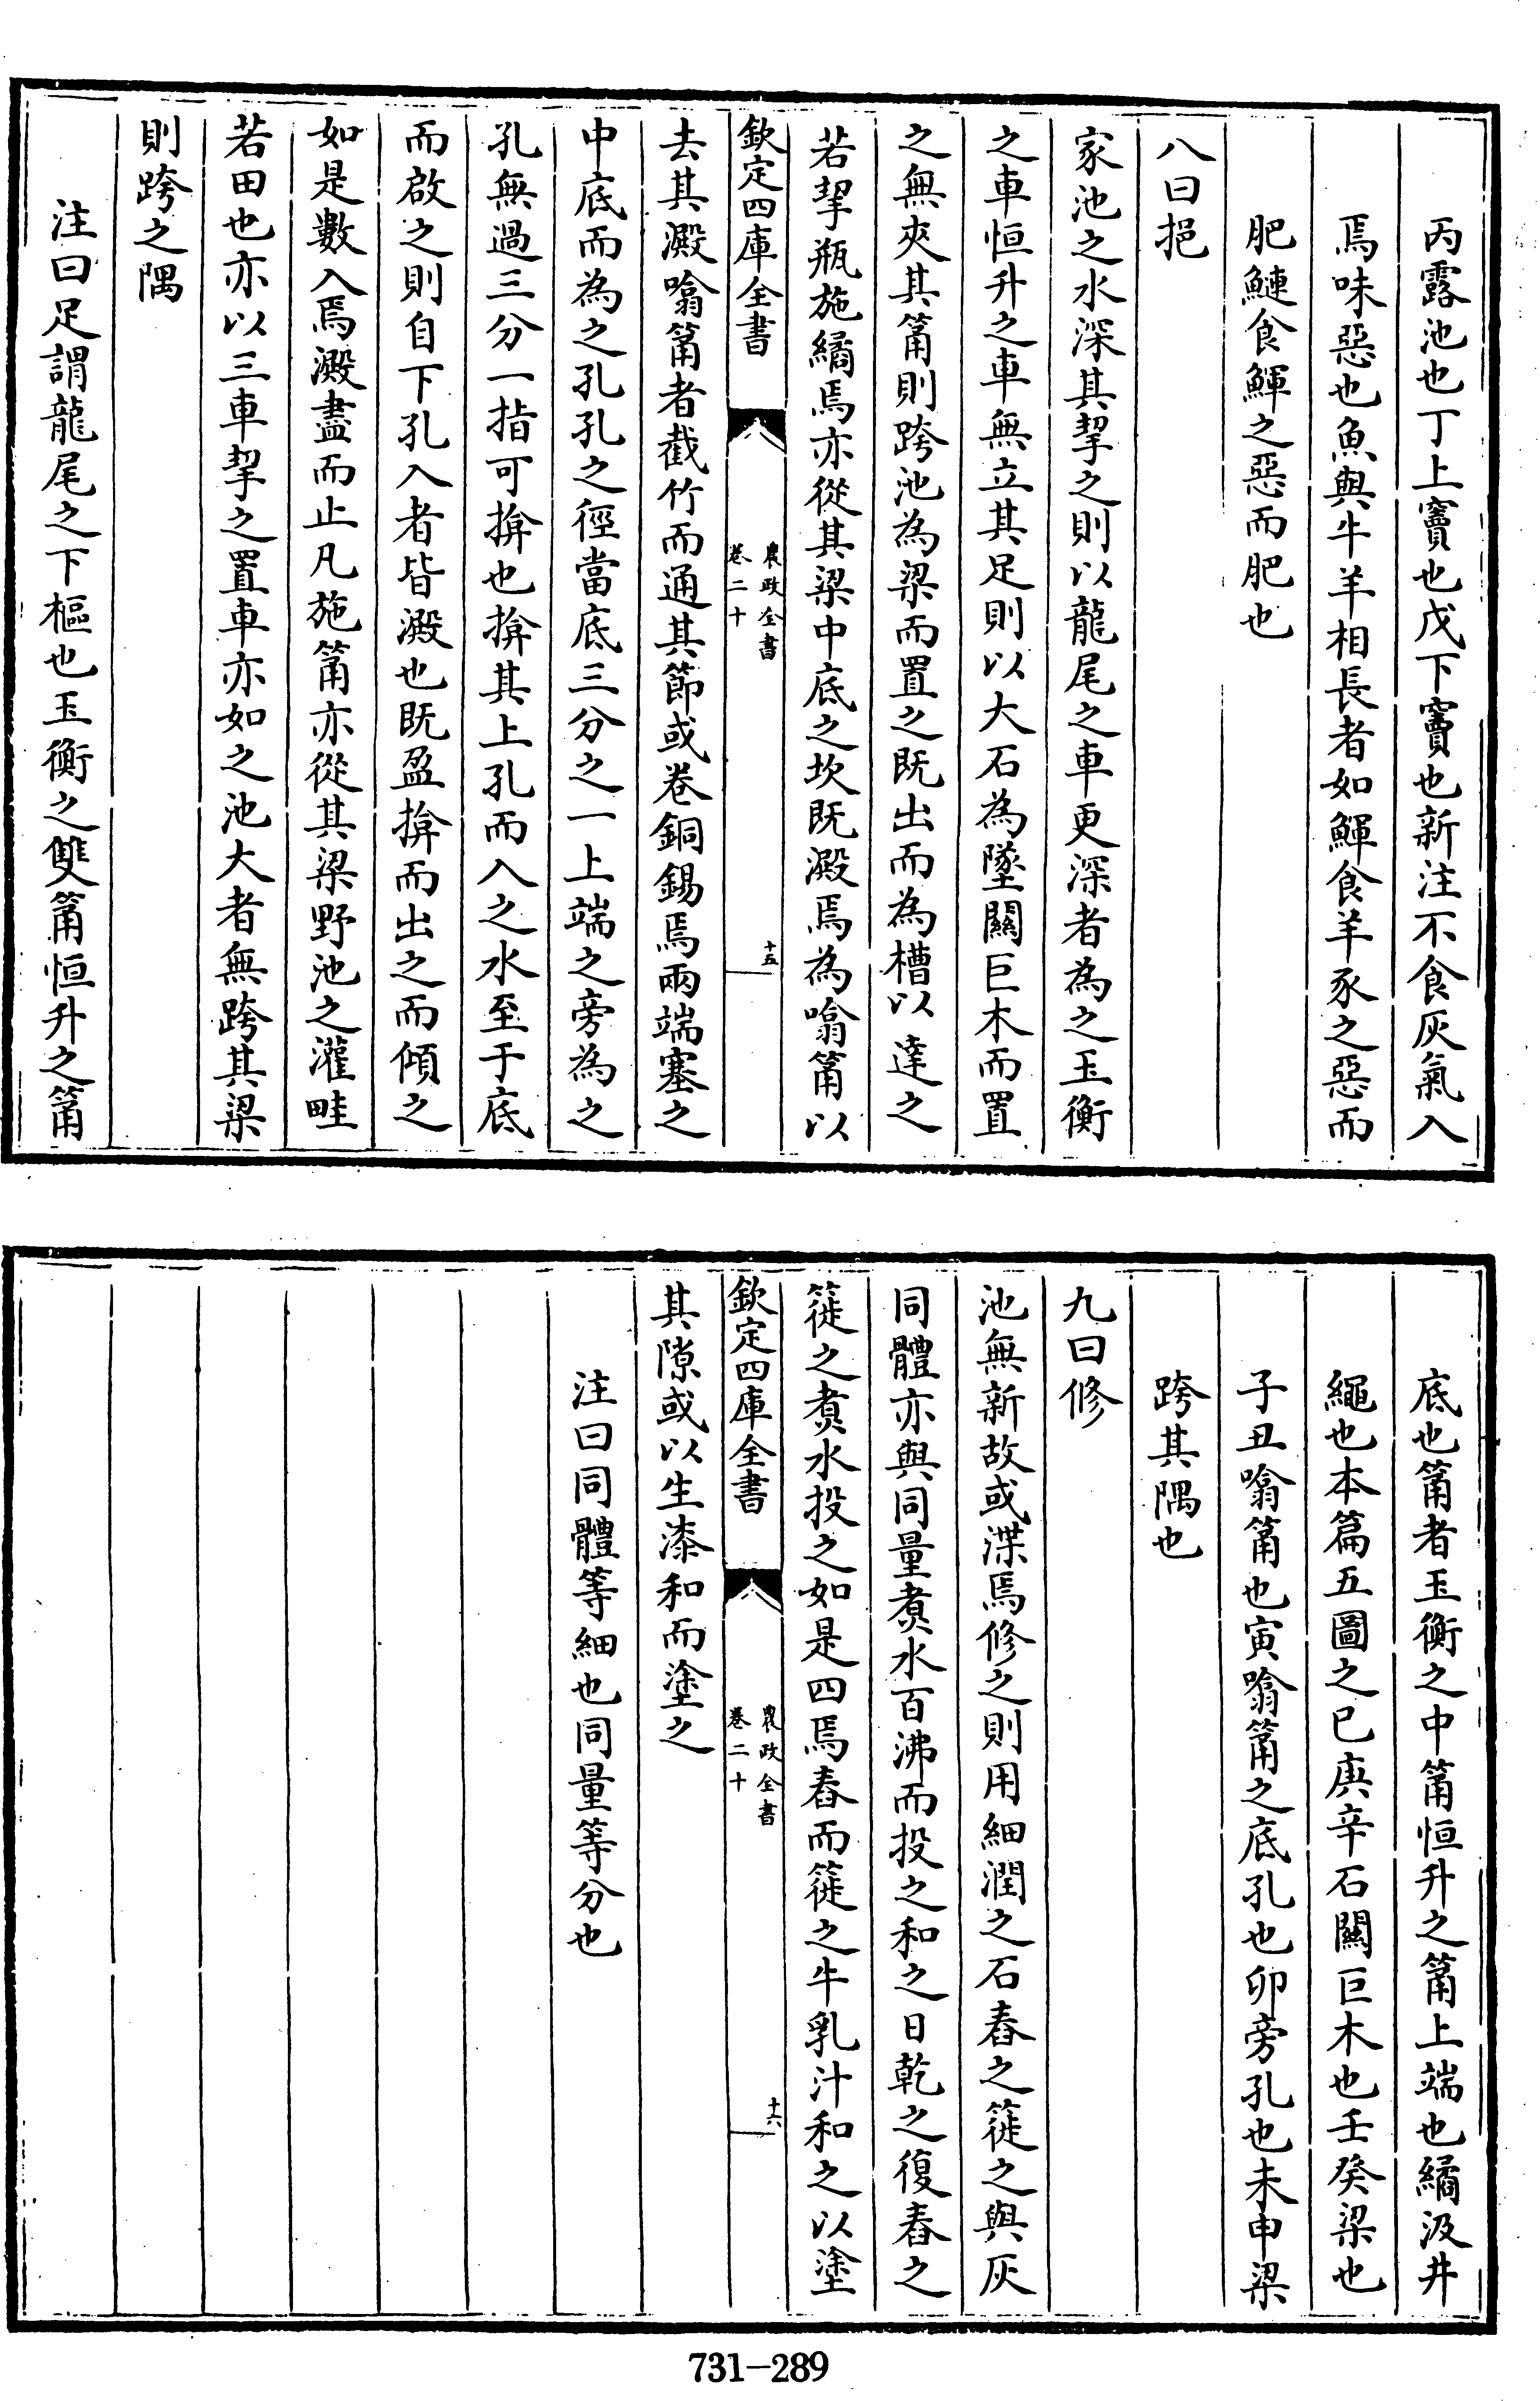 丙露池也丁上竇也戊下竇也新注不食灰氣入
焉味惡也魚與牛羊相長者如鯶食羊豕之惡而
肥鰱食鯶之惡而肥也
八曰挹
家池之水深其挈之則以龍尾之車更深者為之玉衡
之車恒升之車無立其足則以大石為墜關巨木而置
之無夾其筩則跨池為梁而置之既出而為槽以達之
若挈瓶施繘焉亦從其梁中底之坎既澱焉為噏筩以
欽定四庫全書
農政全書
卷二十
十五
去其澱噏筩者截竹而通其節或卷銅錫焉兩端塞之
中底而為之孔孔之徑當底三分之一上端之旁為之
孔無過三分一指可揜也揜其上孔而入之水至于底
而啟之則自下孔入者皆澱也既盈揜而出之而傾之
如是數入焉澱盡而止凡施筩亦從其梁野池之灌畦
若田也亦以三車挈之置車亦如之池大者無跨其梁
則跨之隅
注曰足謂龍尾之下樞也玉衡之雙筩恒升之筩
底也筩者玉衡之中筩恒升之筩上端也繘汲井
繩也本篇五圖之已庚辛石關巨木也壬癸梁也
子丑噏筩也寅噏筩之底孔也卯旁孔也未申梁
跨其隅也
九曰修
池無新故或渫焉修之則用細潤之石舂之簁之與灰
同體亦與同量煑水百沸而投之和之日乾之復舂之
簁之煑水投之如是四焉舂而簁之牛乳汁和之以塗
欽定四庫全書
農政全書
卷二十
十六
其隙或以生漆和而塗之
注曰同體等細也同量等分也
731-289